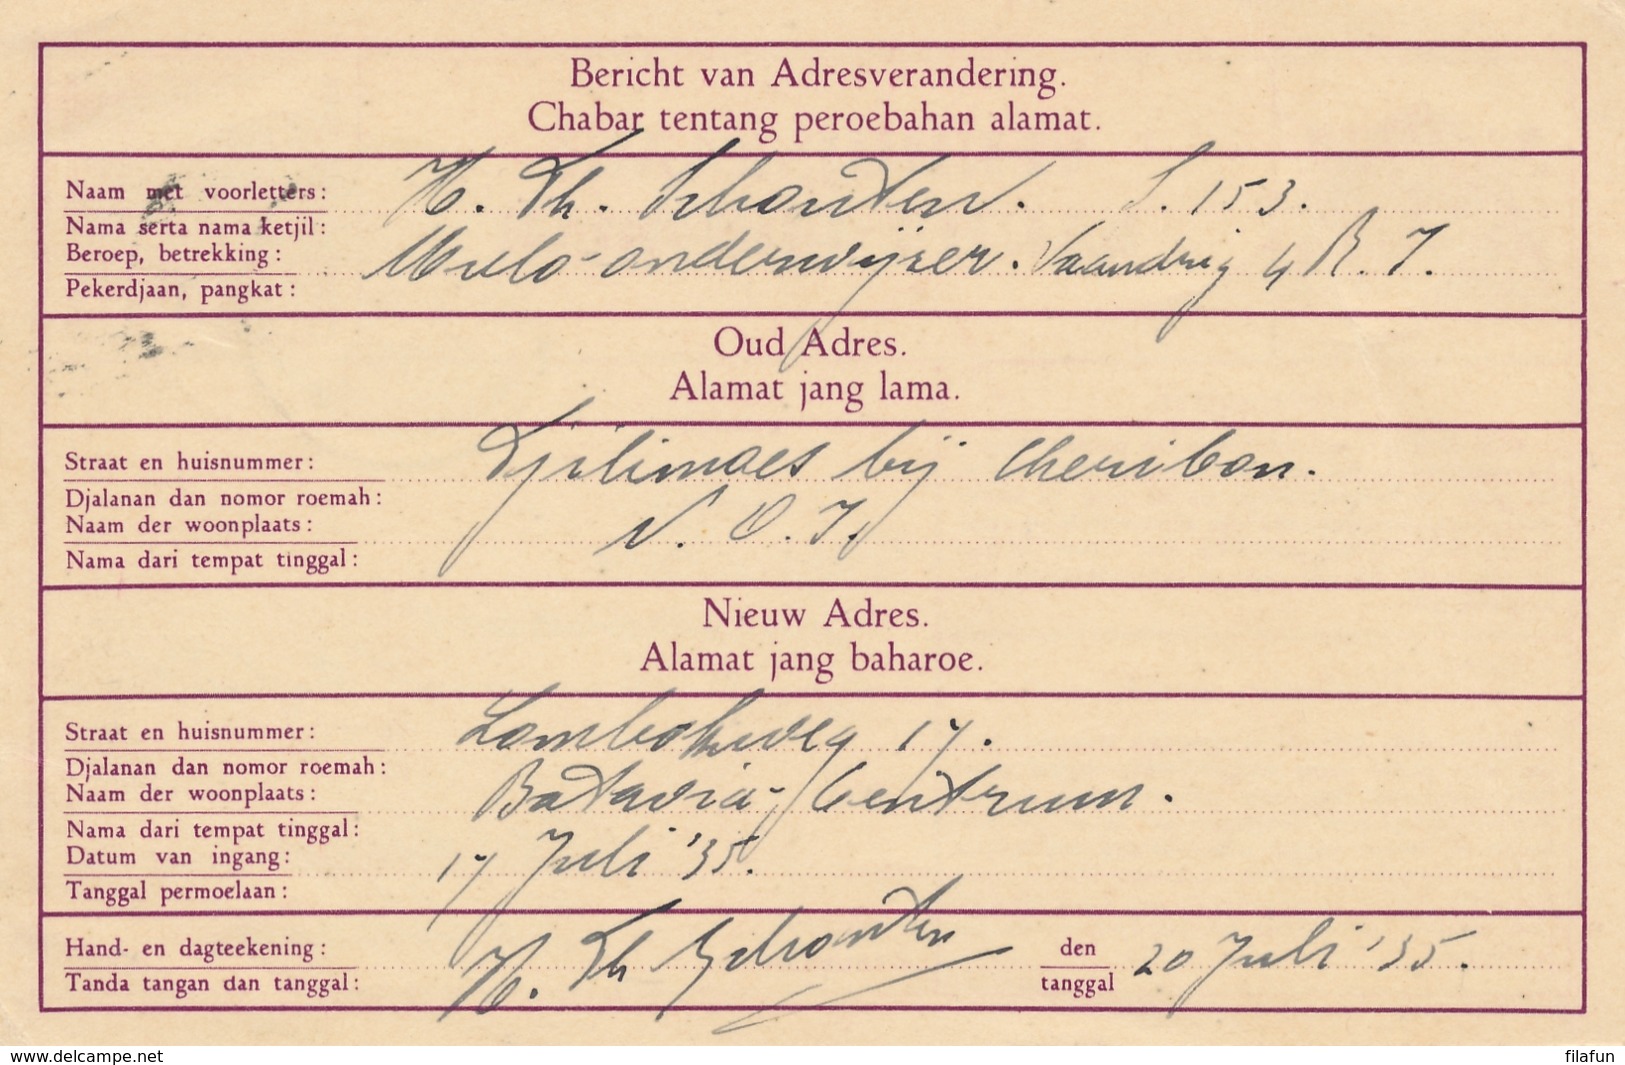 Bericht van Adresverandering.
Chabar tentang peroebahan alamat.
Naam met voorletters: H. Th. Schouten. S. 153.
Nama serta nama ketjil:
Beroep, betrekking: Mulo-onderwijzer. Vaandrig 4 R. I.
Pekerdjaan, pangkat:
Oud Adres.
Alamat jang lama.
Straat en huisnummer: Tjilimoes bij Cheribon.
Djalanan dan nomor roemah:
Naam der woonplaats: N. O. I.
Nama dari tempat tinggal:
Nieuw Adres.
Alamat jang baharoe.
Straat en huisnummer: Lombokweg 17.
Djalanan dan nomor roemah:
Naam der woonplaats: Batavia-Centrum.
Nama dari tempat tinggal:
Datum van ingang: 17 Juli '35.
Tanggal permoelaan:
Hand- en dagteekening: H. Th Schouten den 20 Juli '35.
Tanda tangan dan tanggal: tanggal
www.delcampe.net filafun